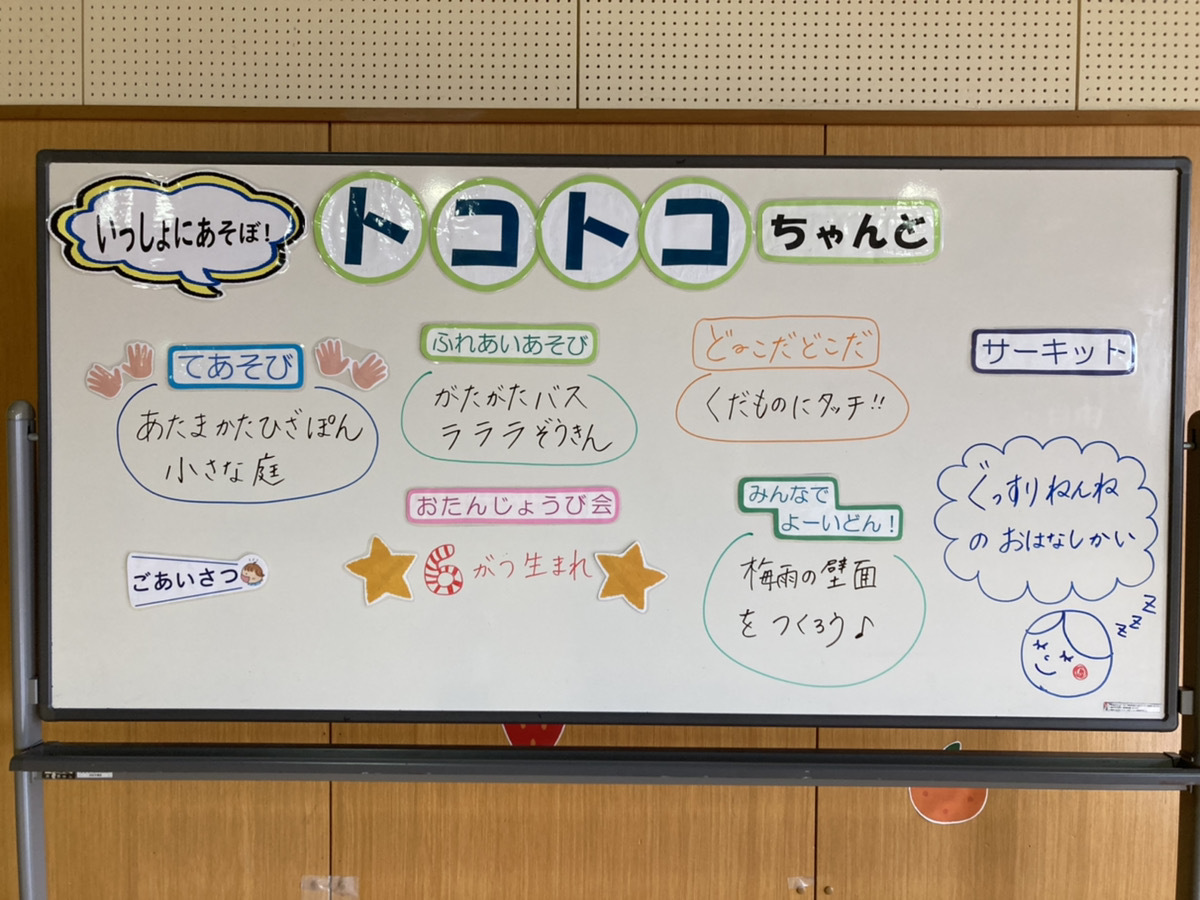 いっしょにあそぼ!
トコトコ
ちゃんど
てあそび
あたまかたひざぽん
小さな庭
ごあいさつ
ふれあいあそび
がたがたバス
ラララぞうきん
おたんじょうび会
6がつ生まれ
どこだどこだ
くだものにタッチ!!
みんなで
よーいどん!
梅雨の壁面
をつくろう♪
サーキット
ぐっすりねんね
のおはなしかい
zzz